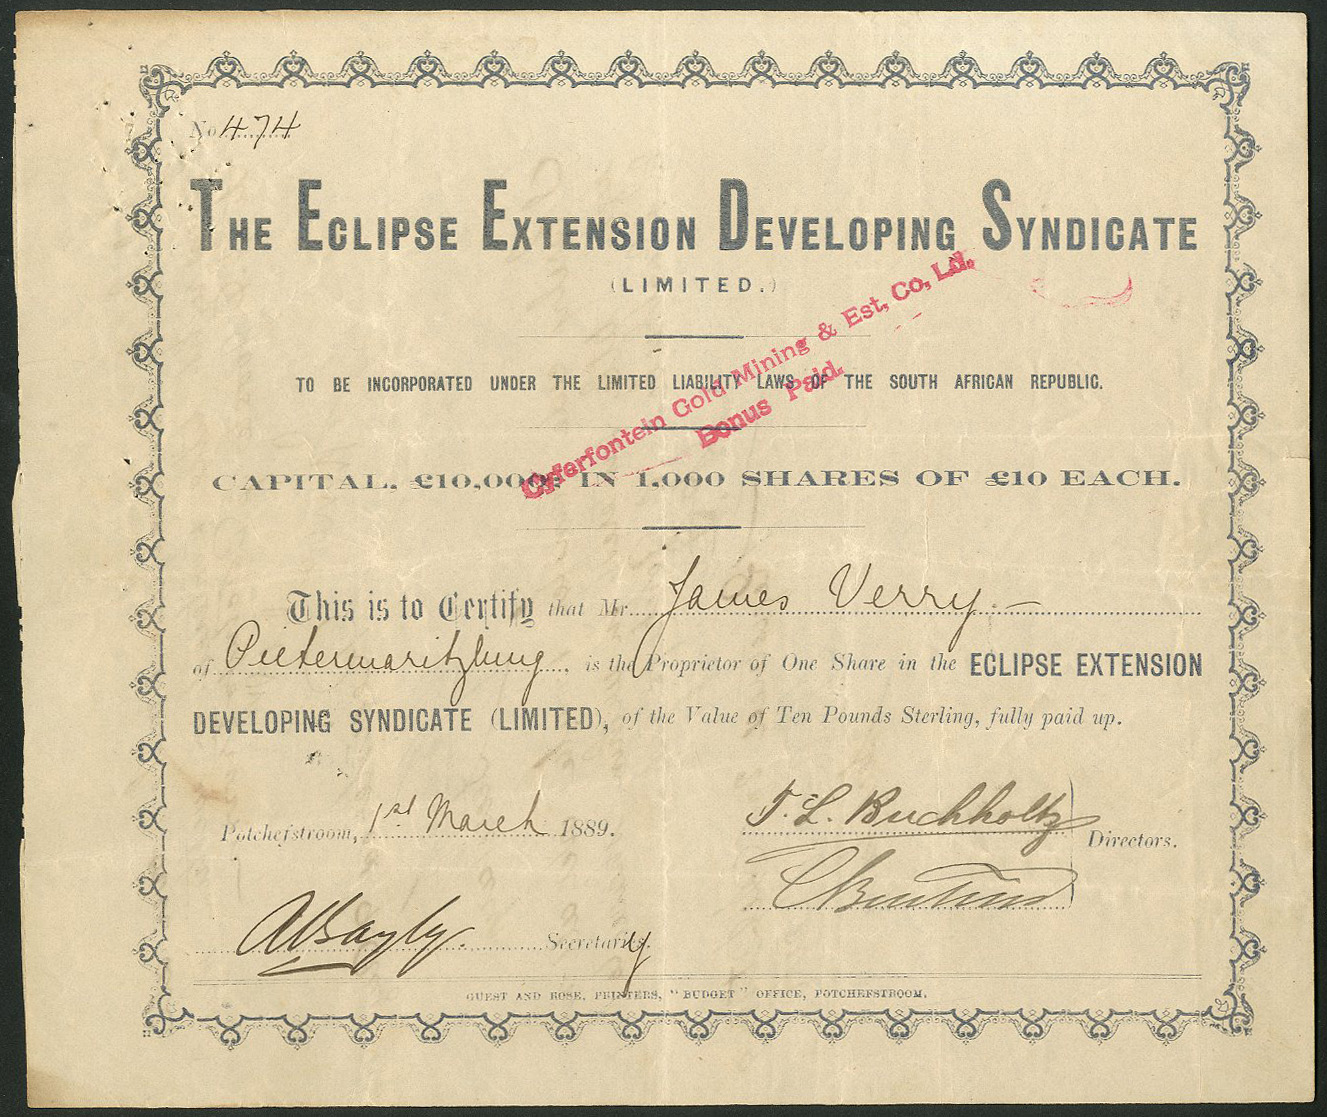 No 474
THE ECLIPSE EXTENSION DEVELOPING SYNDICATE
(LIMITED.)
TO BE INCORPORATED UNDER THE LIMITED LIABILITY LAWS OF THE SOUTH AFRICAN REPUBLIC.
Cyferfontein Gold Mining & Est, Co, Ld.
Bonus Paid.
CAPITAL, £10,000, IN 1,000 SHARES OF £10 EACH.
This is to Certify that Mr. James Verry.—
of Pietermaritzburg is the Proprietor of One Share in the ECLIPSE EXTENSION
DEVELOPING SYNDICATE (LIMITED), of the Value of Ten Pounds Sterling, fully paid up.
Potchefstroom, 1st March 1889.
Directors.
Buchholtz
Bayly. Secretary.
GUEST AND ROSE, PRINTERS, "BUDGET" OFFICE, POTCHEFSTROOM.